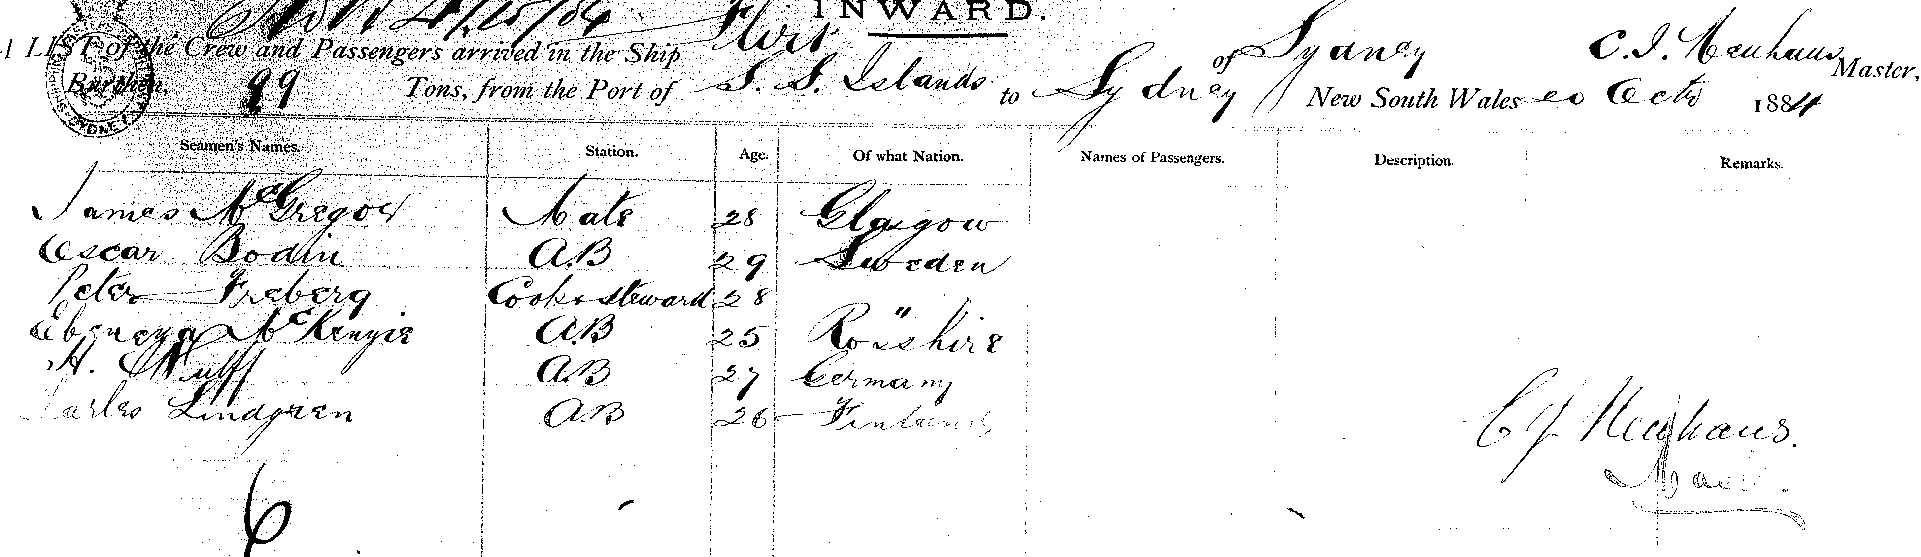 INWARD.
A LIST of the Crew and Passengers arrived in the Ship Flirt of Sydney C. J. Neuhaus, Master,
Burthen, 99 Tons, from the Port of S. S. Islands to Sydney New South Wales 20 Octr 1884
Seamen's Names. Station. Age. Of what Nation. Names of Passengers. Description. Remarks.
James McGregor Mate 28 Glasgow
Oscar Bodin A.B 29 Sweden
Peter Freberg Cook & steward 28 "
Ebenezer McKenzie A.B 25 Rossshire
H. Wulff A.B 27 Germany
Charles Lindgren A.B 26 Finland
C J Neuhaus.
6